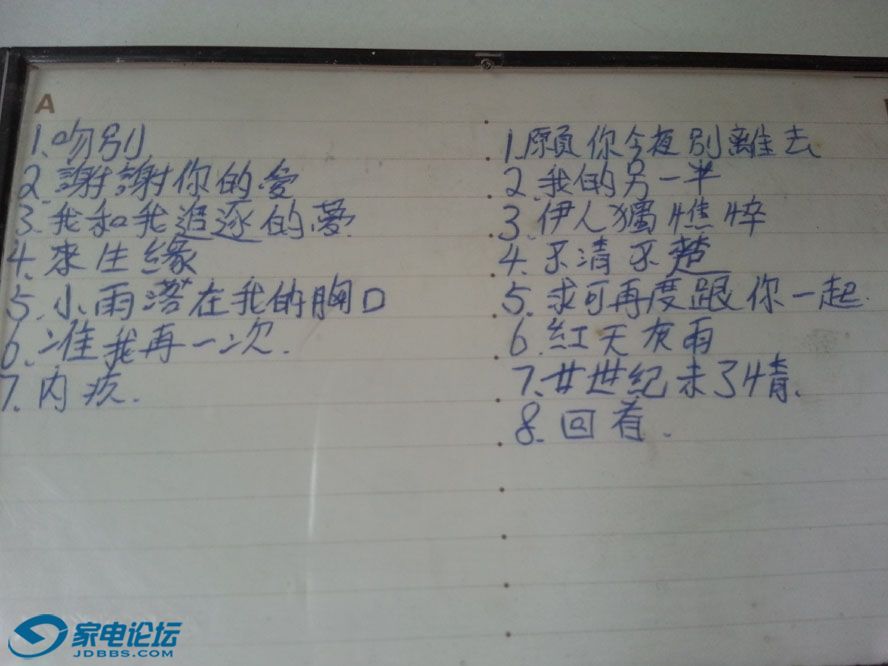 A
1.吻别
2.謝謝你的愛
3.我和我追逐的夢
4.來生緣
5.小雨落在我的胸口
6.准我再一次.
7.内疚.
1.願你今夜别離去
2.我的另一半
3.伊人獨憔悴
4.不清不楚
5.求可再度跟你一起.
6.紅天灰雨
7.廿世紀未了情.
8.回看.
家电论坛
JDBBS.COM